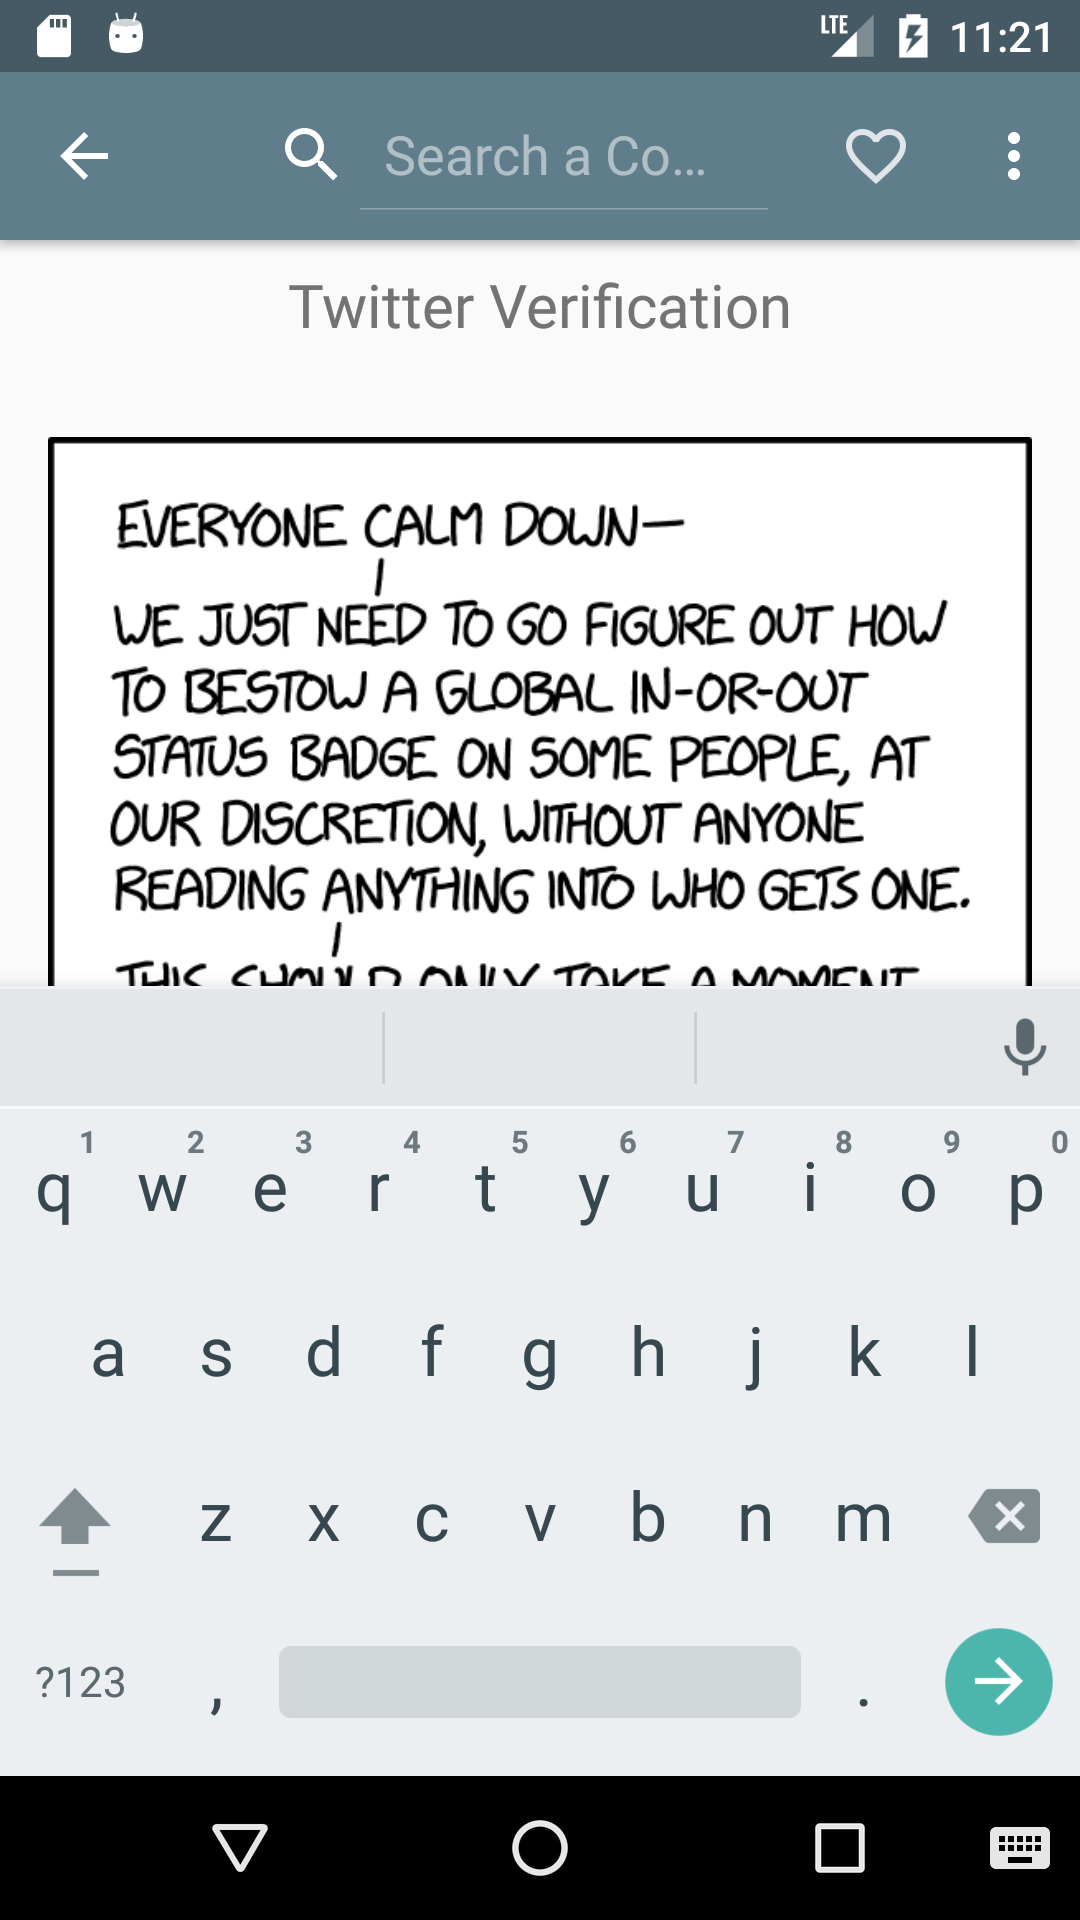 LTE 11:21
Search a Co...
Twitter Verification
EVERYONE CALM DOWN—
WE JUST NEED TO GO FIGURE OUT HOW
TO BESTOW A GLOBAL IN-OR-OUT
STATUS BADGE ON SOME PEOPLE, AT
OUR DISCRETION, WITHOUT ANYONE
READING ANYTHING INTO WHO GETS ONE.
THIS SHOULD ONLY TAKE A MOMENT
1 2 3 4 5 6 7 8 9 0
q w e r t y u i o p
a s d f g h j k l
z x c v b n m
?123 , .